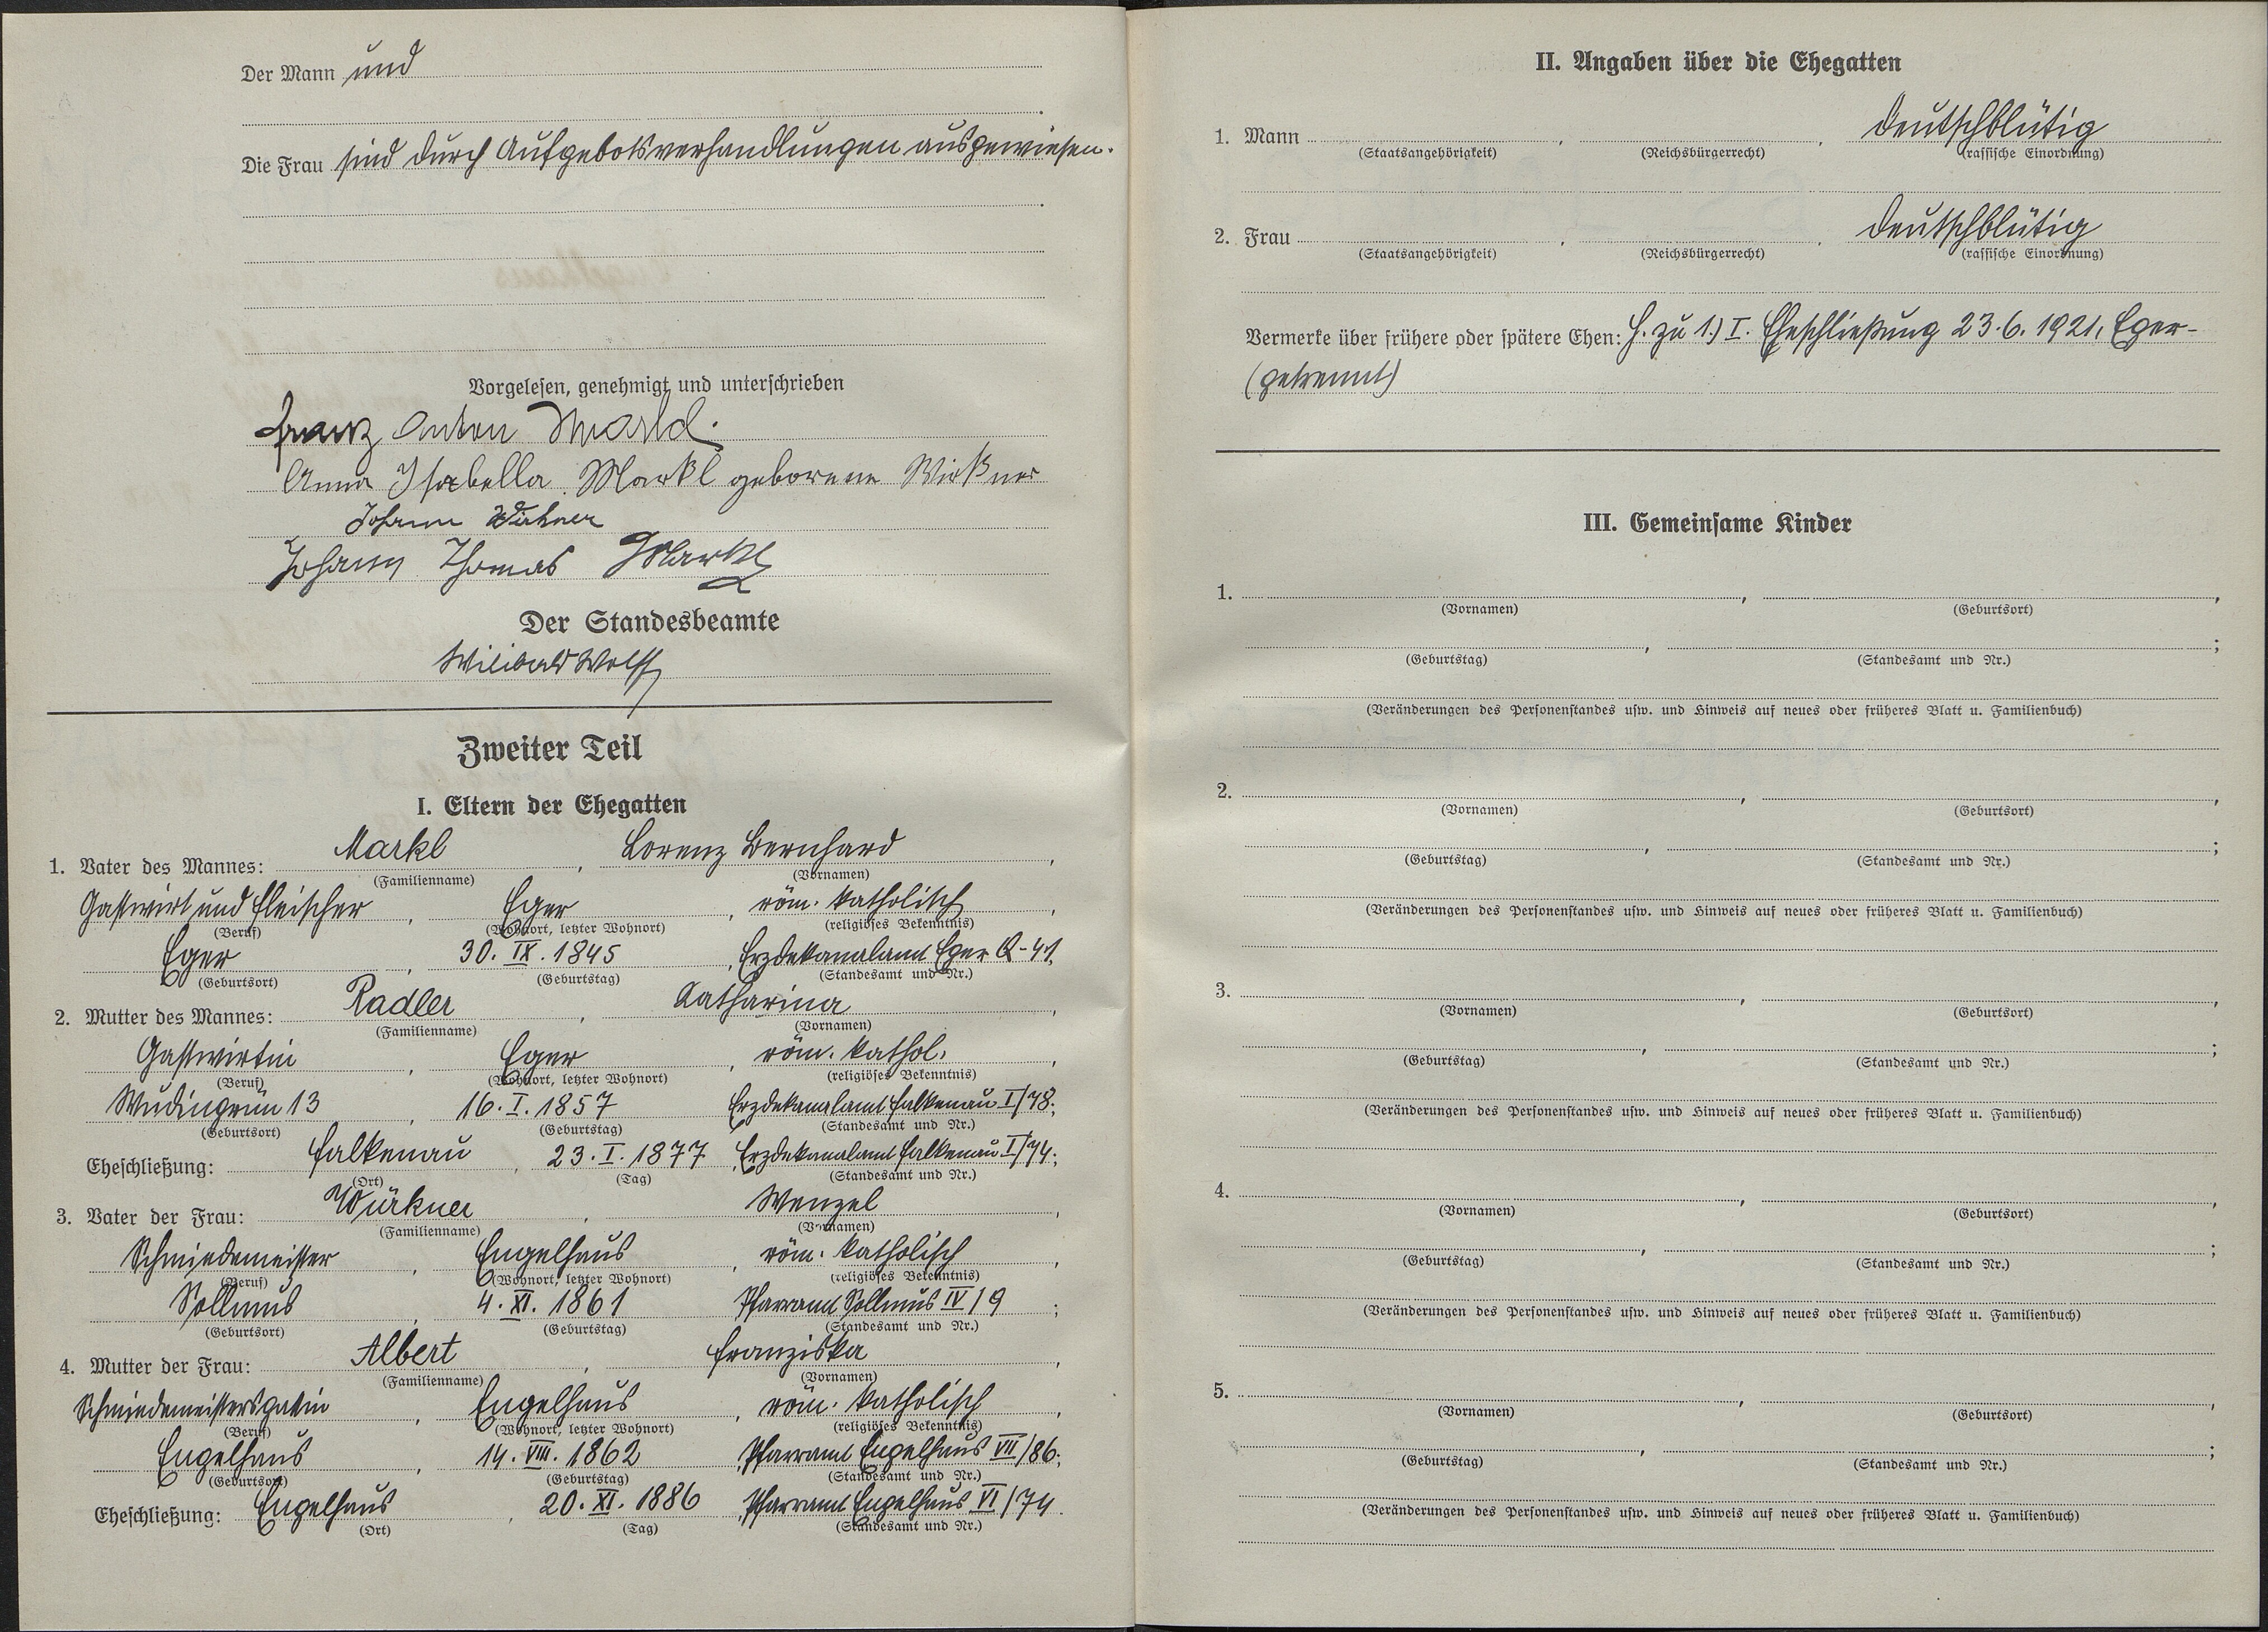 Der Mann und
Die Frau sind durch Aufgebotsverhandlungen ausgewiesen.
Vorgelesen, genehmigt und unterschrieben
Franz Anton Markl.
Anna Isabella Markl geborene Wirkner
Johann Wirkner
Johann Thomas Markl
Der Standesbeamte
Wilibald Wolf
Zweiter Teil
I. Eltern der Ehegatten
1. Vater des Mannes: Markl, Lorenz Bernhard,
(Familienname) (Vornamen)
Gastwirt und Fleischer, Eger, röm. katholisch,
(Beruf) (Wohnort, letzter Wohnort) (religiöses Bekenntnis)
Eger, 30. IX. 1845, Erzdekanalamt Eger Q-41;
(Geburtsort) (Geburtstag) (Standesamt und Nr.)
2. Mutter des Mannes: Radler, Katharina,
(Familienname) (Vornamen)
Gastwirtin, Eger, röm. kathol.,
(Beruf) (Wohnort, letzter Wohnort) (religiöses Bekenntnis)
Wudingrün 13, 16. I. 1857, Erzdekanalamt Falkenau I/78;
(Geburtsort) (Geburtstag) (Standesamt und Nr.)
Eheschließung: Falkenau, 23. I. 1877, Erzdekanalamt Falkenau I/74;
(Ort) (Tag) (Standesamt und Nr.)
3. Vater der Frau: Würkner, Wenzel,
(Familienname) (Vornamen)
Schmiedemeister, Engelhaus, röm. katholisch,
(Beruf) (Wohnort, letzter Wohnort) (religiöses Bekenntnis)
Sollmus, 4. XI. 1861 Pfarramt Sollmus IV/9;
(Geburtsort) (Geburtstag) (Standesamt und Nr.)
4. Mutter der Frau: Albert, Franziska,
(Familienname) (Vornamen)
Schmiedemeistersgattin, Engelhaus, röm. katholisch,
(Beruf) (Wohnort, letzter Wohnort) (religiöses Bekenntnis)
Engelhaus, 14. VIII. 1862, Pfarramt Engelhaus VII/86;
(Geburtsort) (Geburtstag) (Standesamt und Nr.)
Eheschließung: Engelhaus, 20. XI. 1886, Pfarramt Engelhaus VI/74.
(Ort) (Tag) (Standesamt und Nr.)
II. Angaben über die Ehegatten
1. Mann, , deutschblütig
(Staatsangehörigkeit) (Reichsbürgerrecht) (rassische Einordnung)
2. Frau, , deutschblütig
(Staatsangehörigkeit) (Reichsbürgerrecht) (rassische Einordnung)
Vermerke über frühere oder spätere Ehen: zu 1.) I. Eheschließung 23.6.1921, Eger-
(getrennt)
III. Gemeinsame Kinder
1. , ,
(Vornamen) (Geburtsort)
, ;
(Geburtstag) (Standesamt und Nr.)
(Veränderungen des Personenstandes usw. und Hinweis auf neues oder früheres Blatt u. Familienbuch)
2. , ,
(Vornamen) (Geburtsort)
, ;
(Geburtstag) (Standesamt und Nr.)
(Veränderungen des Personenstandes usw. und Hinweis auf neues oder früheres Blatt u. Familienbuch)
3. , ,
(Vornamen) (Geburtsort)
, ;
(Geburtstag) (Standesamt und Nr.)
(Veränderungen des Personenstandes usw. und Hinweis auf neues oder früheres Blatt u. Familienbuch)
4. , ,
(Vornamen) (Geburtsort)
, ;
(Geburtstag) (Standesamt und Nr.)
(Veränderungen des Personenstandes usw. und Hinweis auf neues oder früheres Blatt u. Familienbuch)
5. , ,
(Vornamen) (Geburtsort)
, ;
(Geburtstag) (Standesamt und Nr.)
(Veränderungen des Personenstandes usw. und Hinweis auf neues oder früheres Blatt u. Familienbuch)